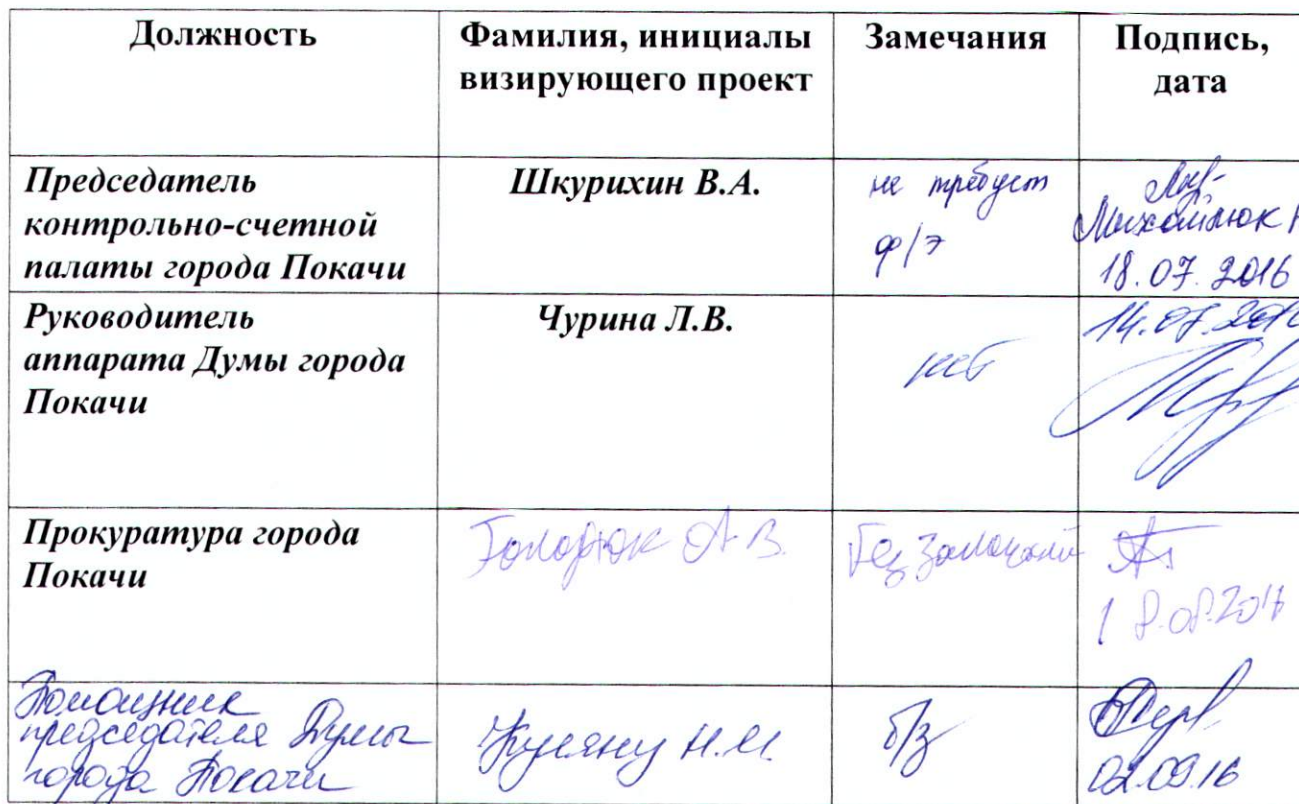 Должность
Фамилия, инициалы
визирующего проект
Замечания
Подпись,
дата
Председатель
контрольно-счетной
палаты города Покачи
Шкурихин В.А.
не требует
ф/э
18.07.2016
Руководитель
аппарата Думы города
Покачи
Чурина Л.В.
нет
Прокуратура города
Покачи
А.В.
Без замечаний
Помощник
председателя Думы
города Покачи
Н.И.
б/з
02.09.16